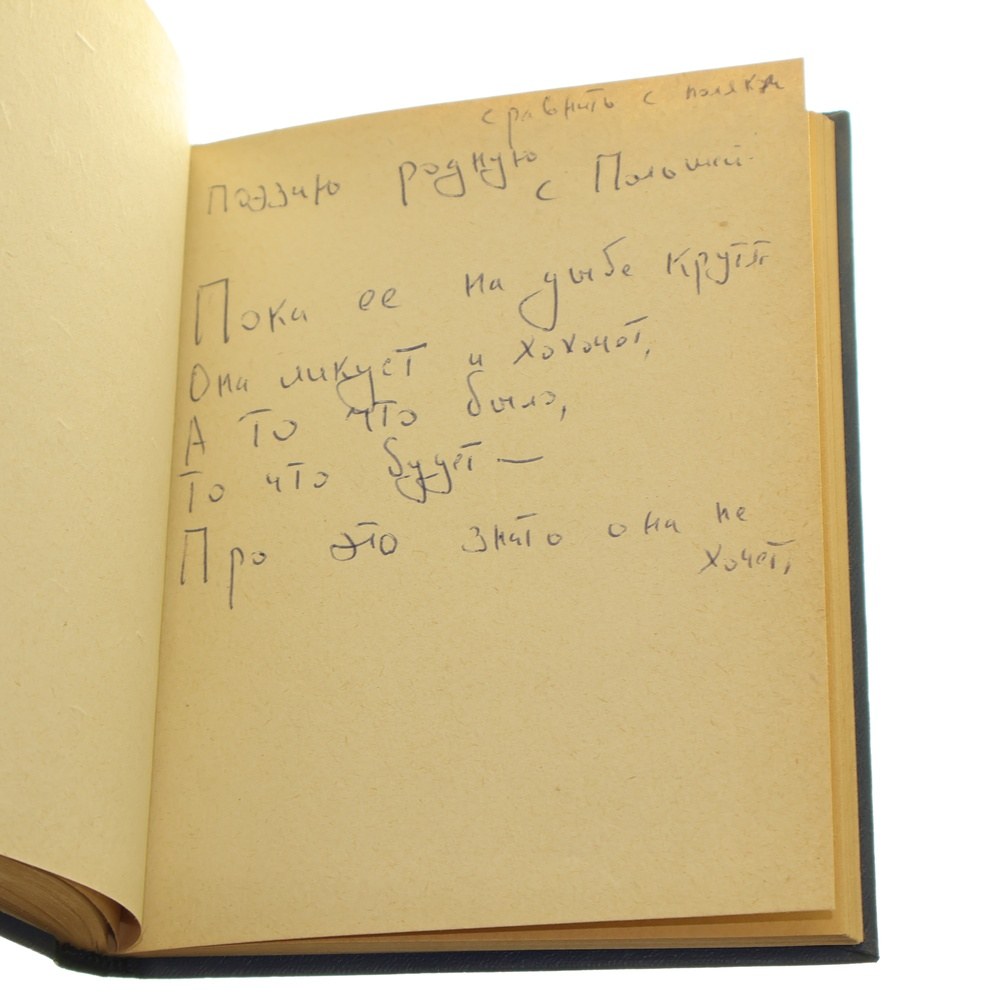 сравнить с поляка
поэзию родную
с Польшей.
Пока ее на дыбе крутят
Она ликует и хохочет,
А то что было,
то что будет —
Про это знать она не
хочет,